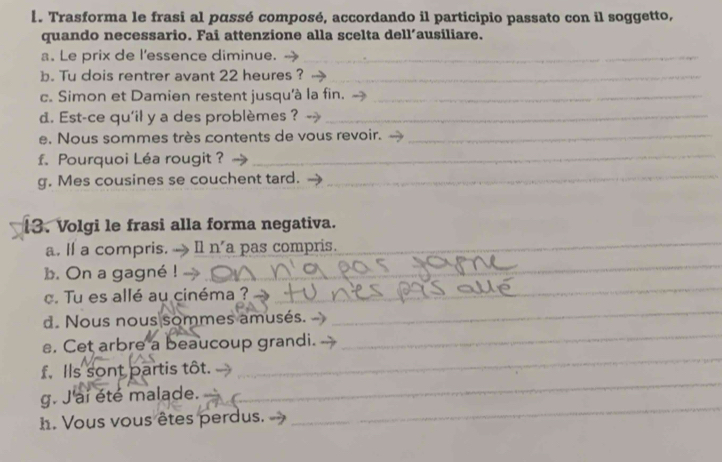 1. Trasforma le frasi al passé composé, accordando il participio passato con il soggetto,
quando necessario. Fai attenzione alla scelta dell'ausiliare.
a. Le prix de l'essence diminue. →
b. Tu dois rentrer avant 22 heures ? →
c. Simon et Damien restent jusqu'à la fin. →
d. Est-ce qu'il y a des problèmes ? →
e. Nous sommes très contents de vous revoir. →
f. Pourquoi Léa rougit ? →
g. Mes cousines se couchent tard. →
13. Volgi le frasi alla forma negativa.
a. Il a compris. → Il n'a pas compris.
b. On a gagné ! → on n'a pas gagne
c. Tu es allé au cinéma ? → tu n'es pas allé
NE PAS
d. Nous nous sommes amusés. →
e. Cet arbre a beaucoup grandi. →
f. Ils sont partis tôt. →
NE PAS
g. J'ai été malade. →
h. Vous vous êtes perdus. →